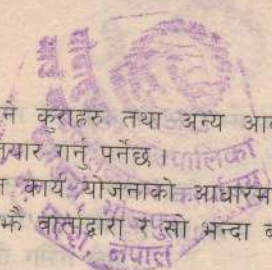 ने कुराहरु तथा अन्य आव
तयार गर्नु पर्नेछ ।
न कार्य योजनाको आधारम
झै वार्ताद्वारा र सो भन्दा ब
नेपाल